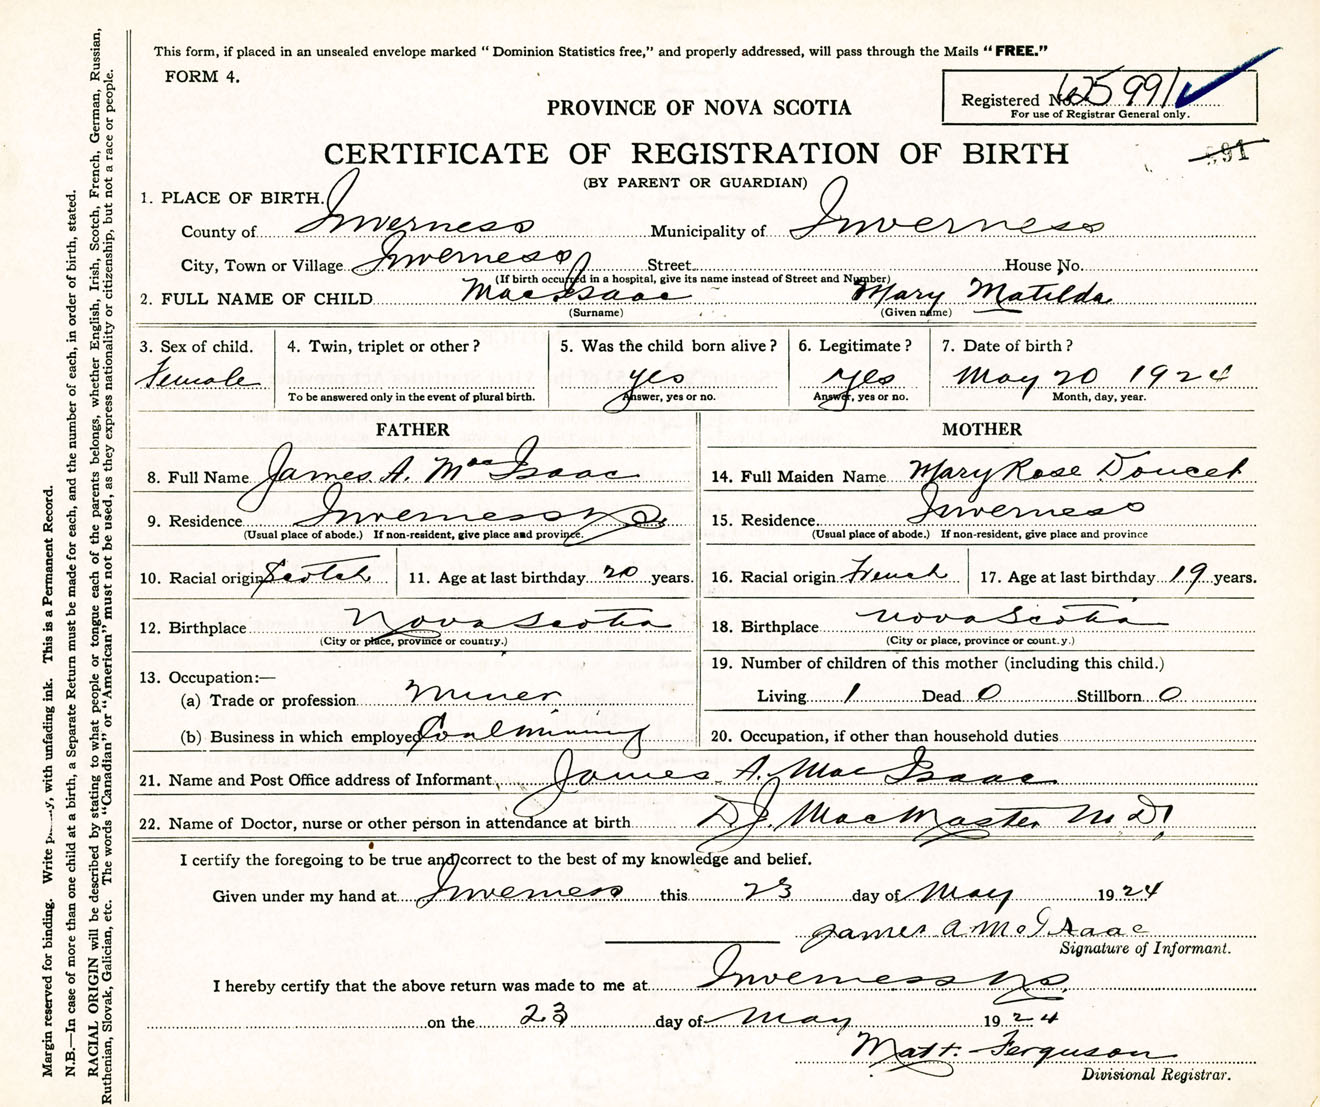 This form, if placed in an unsealed envelope marked "Dominion Statistics free," and properly addressed, will pass through the Mails "FREE."
FORM 4.
Registered No. 625991
For use of Registrar General only.
PROVINCE OF NOVA SCOTIA
CERTIFICATE OF REGISTRATION OF BIRTH
(BY PARENT OR GUARDIAN)
1. PLACE OF BIRTH.
County of Inverness Municipality of Inverness
City, Town or Village Inverness Street House No.
(If birth occurred in a hospital, give its name instead of Street and Number)
2. FULL NAME OF CHILD MacIsaac Mary Matilda
(Surname) (Given name)
3. Sex of child. 4. Twin, triplet or other? 5. Was the child born alive? 6. Legitimate? 7. Date of birth?
Female yes yes May 20 1924
To be answered only in the event of plural birth. Answer, yes or no. Answer, yes or no. Month, day, year.
FATHER
8. Full Name James A. MacIsaac
9. Residence Inverness N.S.
(Usual place of abode.) If non-resident, give place and province.
10. Racial origin Scotch 11. Age at last birthday 20 years.
12. Birthplace Nova Scotia
(City or place, province or country.)
13. Occupation:—
(a) Trade or profession Miner
(b) Business in which employed Coal mining
MOTHER
14. Full Maiden Name Mary Rose Doucet
15. Residence Inverness
(Usual place of abode.) If non-resident, give place and province
16. Racial origin French 17. Age at last birthday 19 years.
18. Birthplace Nova Scotia
(City or place, province or count.y.)
19. Number of children of this mother (including this child.)
Living 1 Dead 0 Stillborn 0
20. Occupation, if other than household duties
21. Name and Post Office address of Informant James A. MacIsaac
22. Name of Doctor, nurse or other person in attendance at birth D.J. MacMaster M.D.
I certify the foregoing to be true and correct to the best of my knowledge and belief.
Given under my hand at Inverness this 23 day of May 1924
James A McIsaac
Signature of Informant.
I hereby certify that the above return was made to me at Inverness N.S.
on the 23 day of May 1924
Matt. Ferguson
Divisional Registrar.
Margin reserved for binding. Write with unfading ink. This is a Permanent Record.
N.B.—In case of more than one child at a birth, a Separate Return must be made for each, and the number of each, in order of birth, stated.
RACIAL ORIGIN will be described by stating to what people or tongue each of the parents belongs, whether English, Irish, Scotch, French, German, Russian,
Ruthenian, Slovak, Galician, etc. The words "Canadian" or "American" must not be used, as they express nationality or citizenship, but not a race or people.